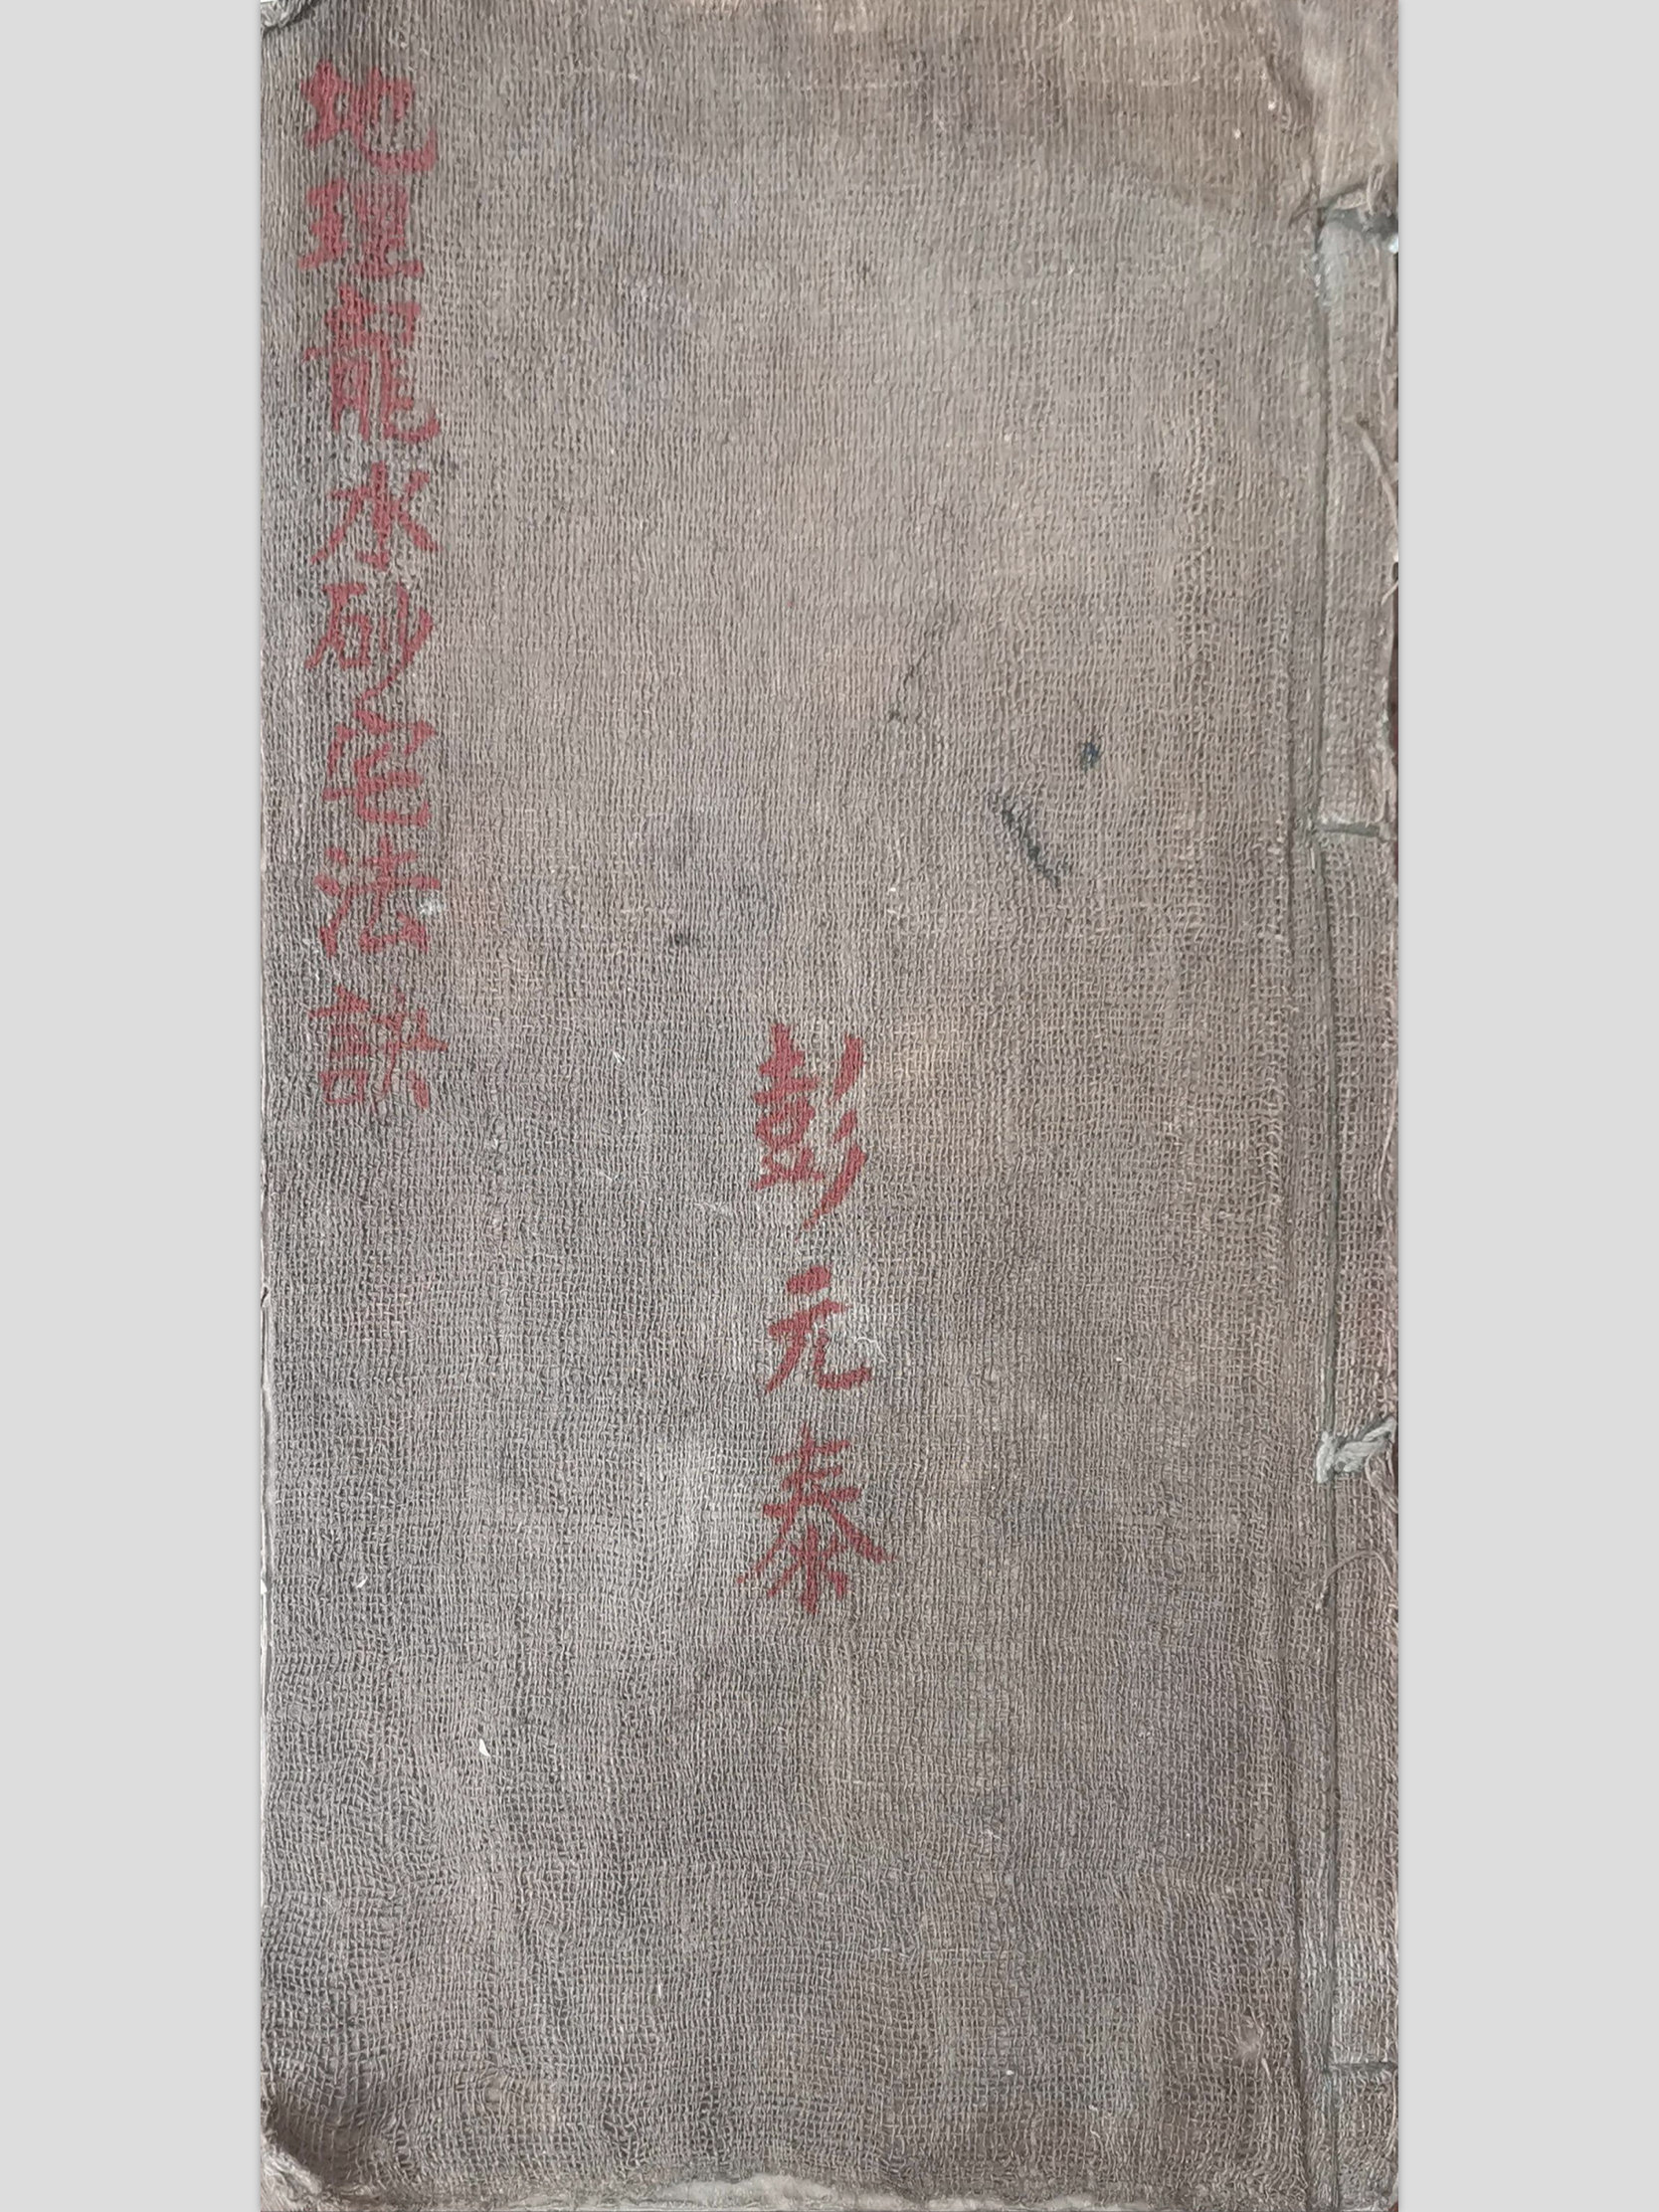 地理龍水砂宅法訣
彭元泰